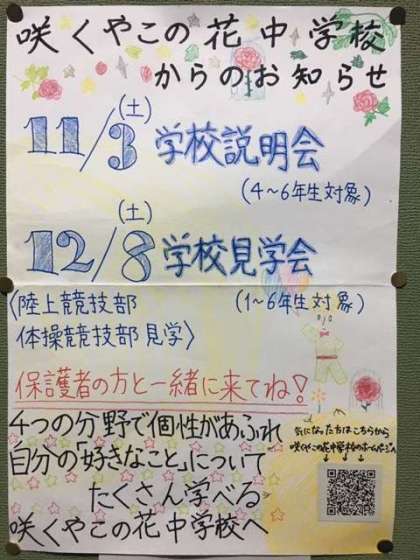 咲くやこの花中学校
からのお知らせ
(土)
11/3 学校説明会
(4~6年生対象)
(土)
12/8 学校見学会
(1~6年生対象)
〈陸上競技部
体操競技部 見学〉
保護者の方と一緒に来てね!
4つの分野で個性があふれ
自分の「好きなこと」について
たくさん学べる
咲くやこの花中学校へ
気になった方はこちらから
咲くやこの花中学校のホームページへ